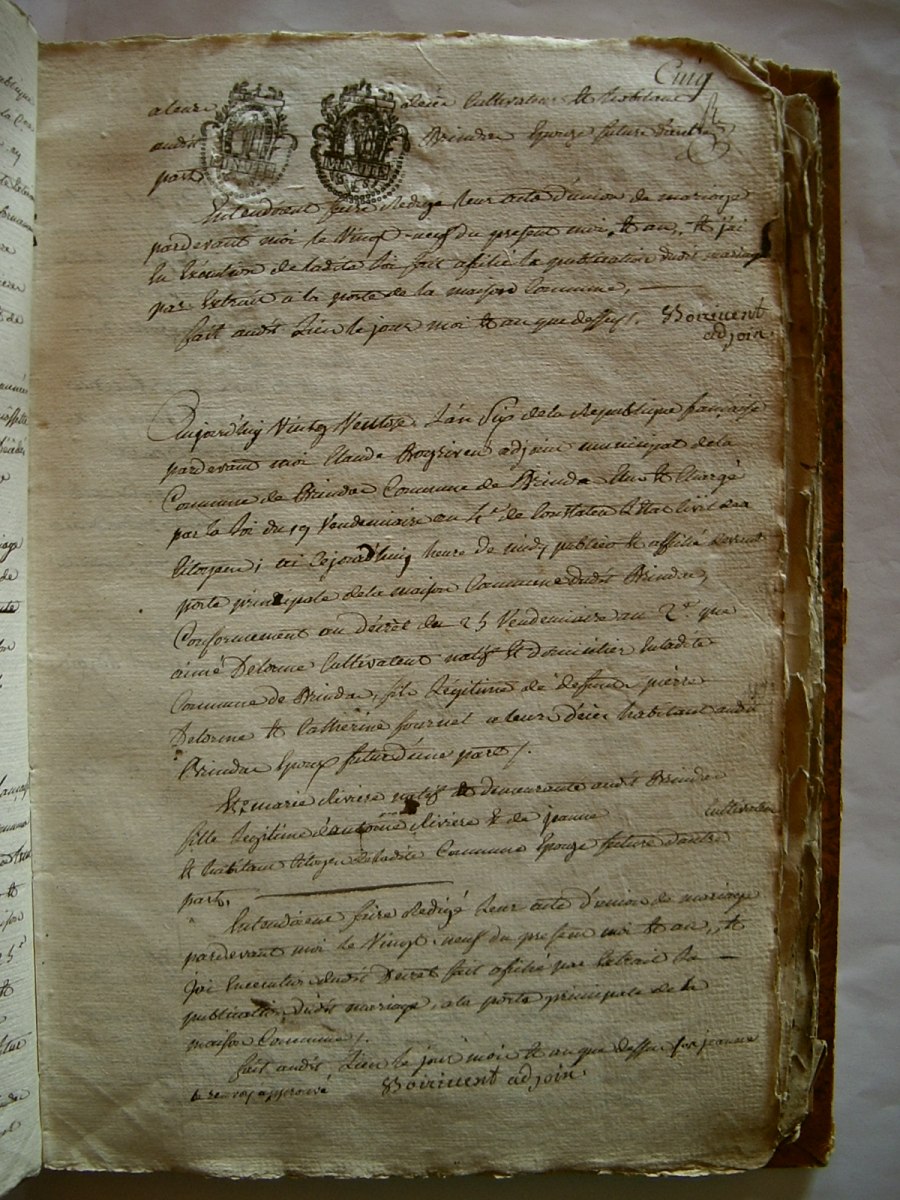 Cinq
a leur décès Cultivateur et habitant
audit Brindas Epouze future d'autre
part
Entendoient faire Redigé leur acte d'union de mariage
pardevant moi le Vingt-neuf du present moi et an, et j'ai
En Exécution de ladite loi fait afiché la publication dudit mariage
par Extrait a la porte de la maison Commune,
fait audit Lieu le jour moi et an que dessus. Boirivent
adjoin.
Aujourd'huy Vintg Ventose L'an Six de la République francaise
pardevant moi Claude adjoint municipal de la
Commune de Brindas Commune de Brindas Elu et Chargé
par la loi du 19 Vendemiaire an 4e de Constater L'Etat Civil des
Citoyens; ai Cejourd'huy heure de midy publié et affiché devant
porte principale de la maison Commune dudit Brindas,
Conformement au décret du 25 Vendemiaire an 2e que
aimé Delorme Cultivateur natif et domicilier En ladite
Commune de Brindas, fils Légitime de deffunt pierre
Delorme et Catherine fournel a leur décès habitant audit
Brindas Epoux futur d'une part.
Et marie Riviere natif et demeurante audit Brindas
fille Legitime d'antoine Riviere et de jeanne Cultivateur
et habitant Citoyen de ladite Commune Epouze future d'autre
part,
Entendoient faire Redigé leur acte d'union de mariage
pardevant moi le Vingt-neuf du present moi et an, et
j'ai Execution dudit Decret fait afiché par Extrait la
publication dudit mariage, a la porte principale de la
maison Commune.
fait audit Lieu le jour moi et an que dessus jeanne
le renvoy approuvé Boirivent adjoin.